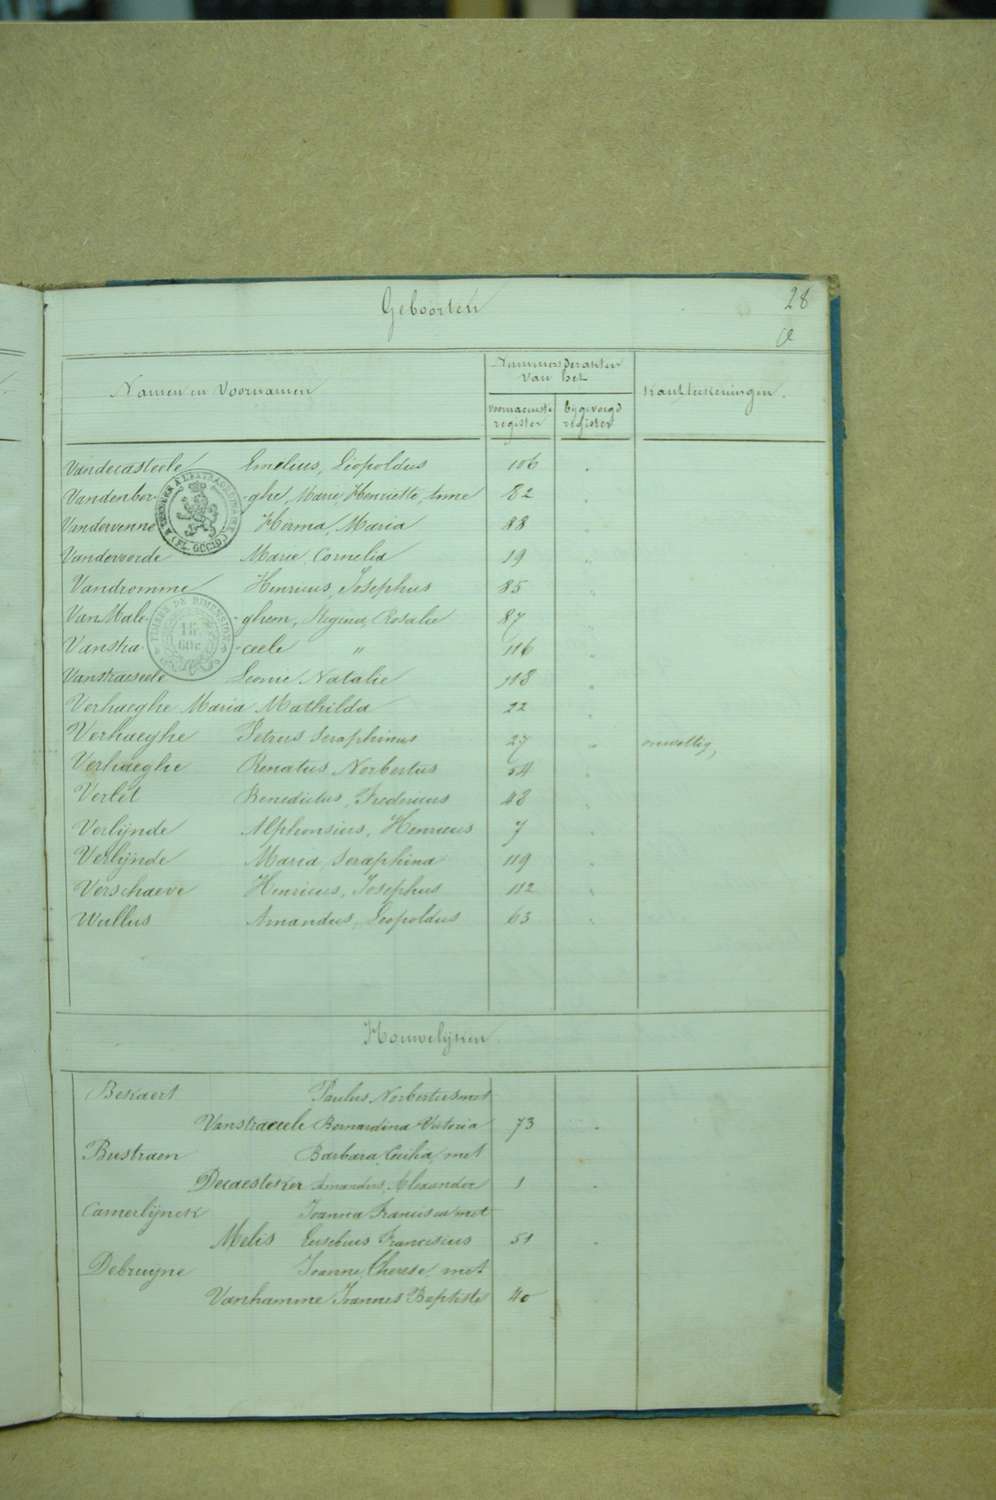 Geboorten
28
Namen en Voornamen
Nummers der akten
van het
Kantteekeningen.
voornaemste
register
bijgevoegd
register
Vandecasteele Emelius, Leopoldus 106
Vandenber-ghe, Marie, Henriette, Anne 82
Vandervenne Herma, Maria 88
Vandervoorde Marie Cornelia 19
Vandromme Henricus, Josephus 85
VanMale-ghem, Regina, Rosalie 87
Vanstra-ceele " 116
Vanstraeseele Leonie Natalie 118
Verhaeghe Maria Mathilda 22
Verhaeghe Petrus Seraphinus 27 onwettig,
Verhaeghe Renatus Norbertus 54
Verlet Benedictus, Fredericus 48
Verlijnde Alphonsius, Henricus 7
Verlijnde Maria, Seraphina 119
Verschaeve Henricus, Josephus 112
Wullus Amandus, Leopoldus 63
Houwelijken
Bekaert Paulus Norbertus met
Vanstraceele Bernardina Victoria 73
Bustraen Barbara Cecilia met
Decaesteker Amandus, Alexander 1
Camerlijnck Joanna Francisca met
Melis Eusebius Franciscus 51
Debruyne Joanne Therese met
Vanhamme Joannes Baptiste 40